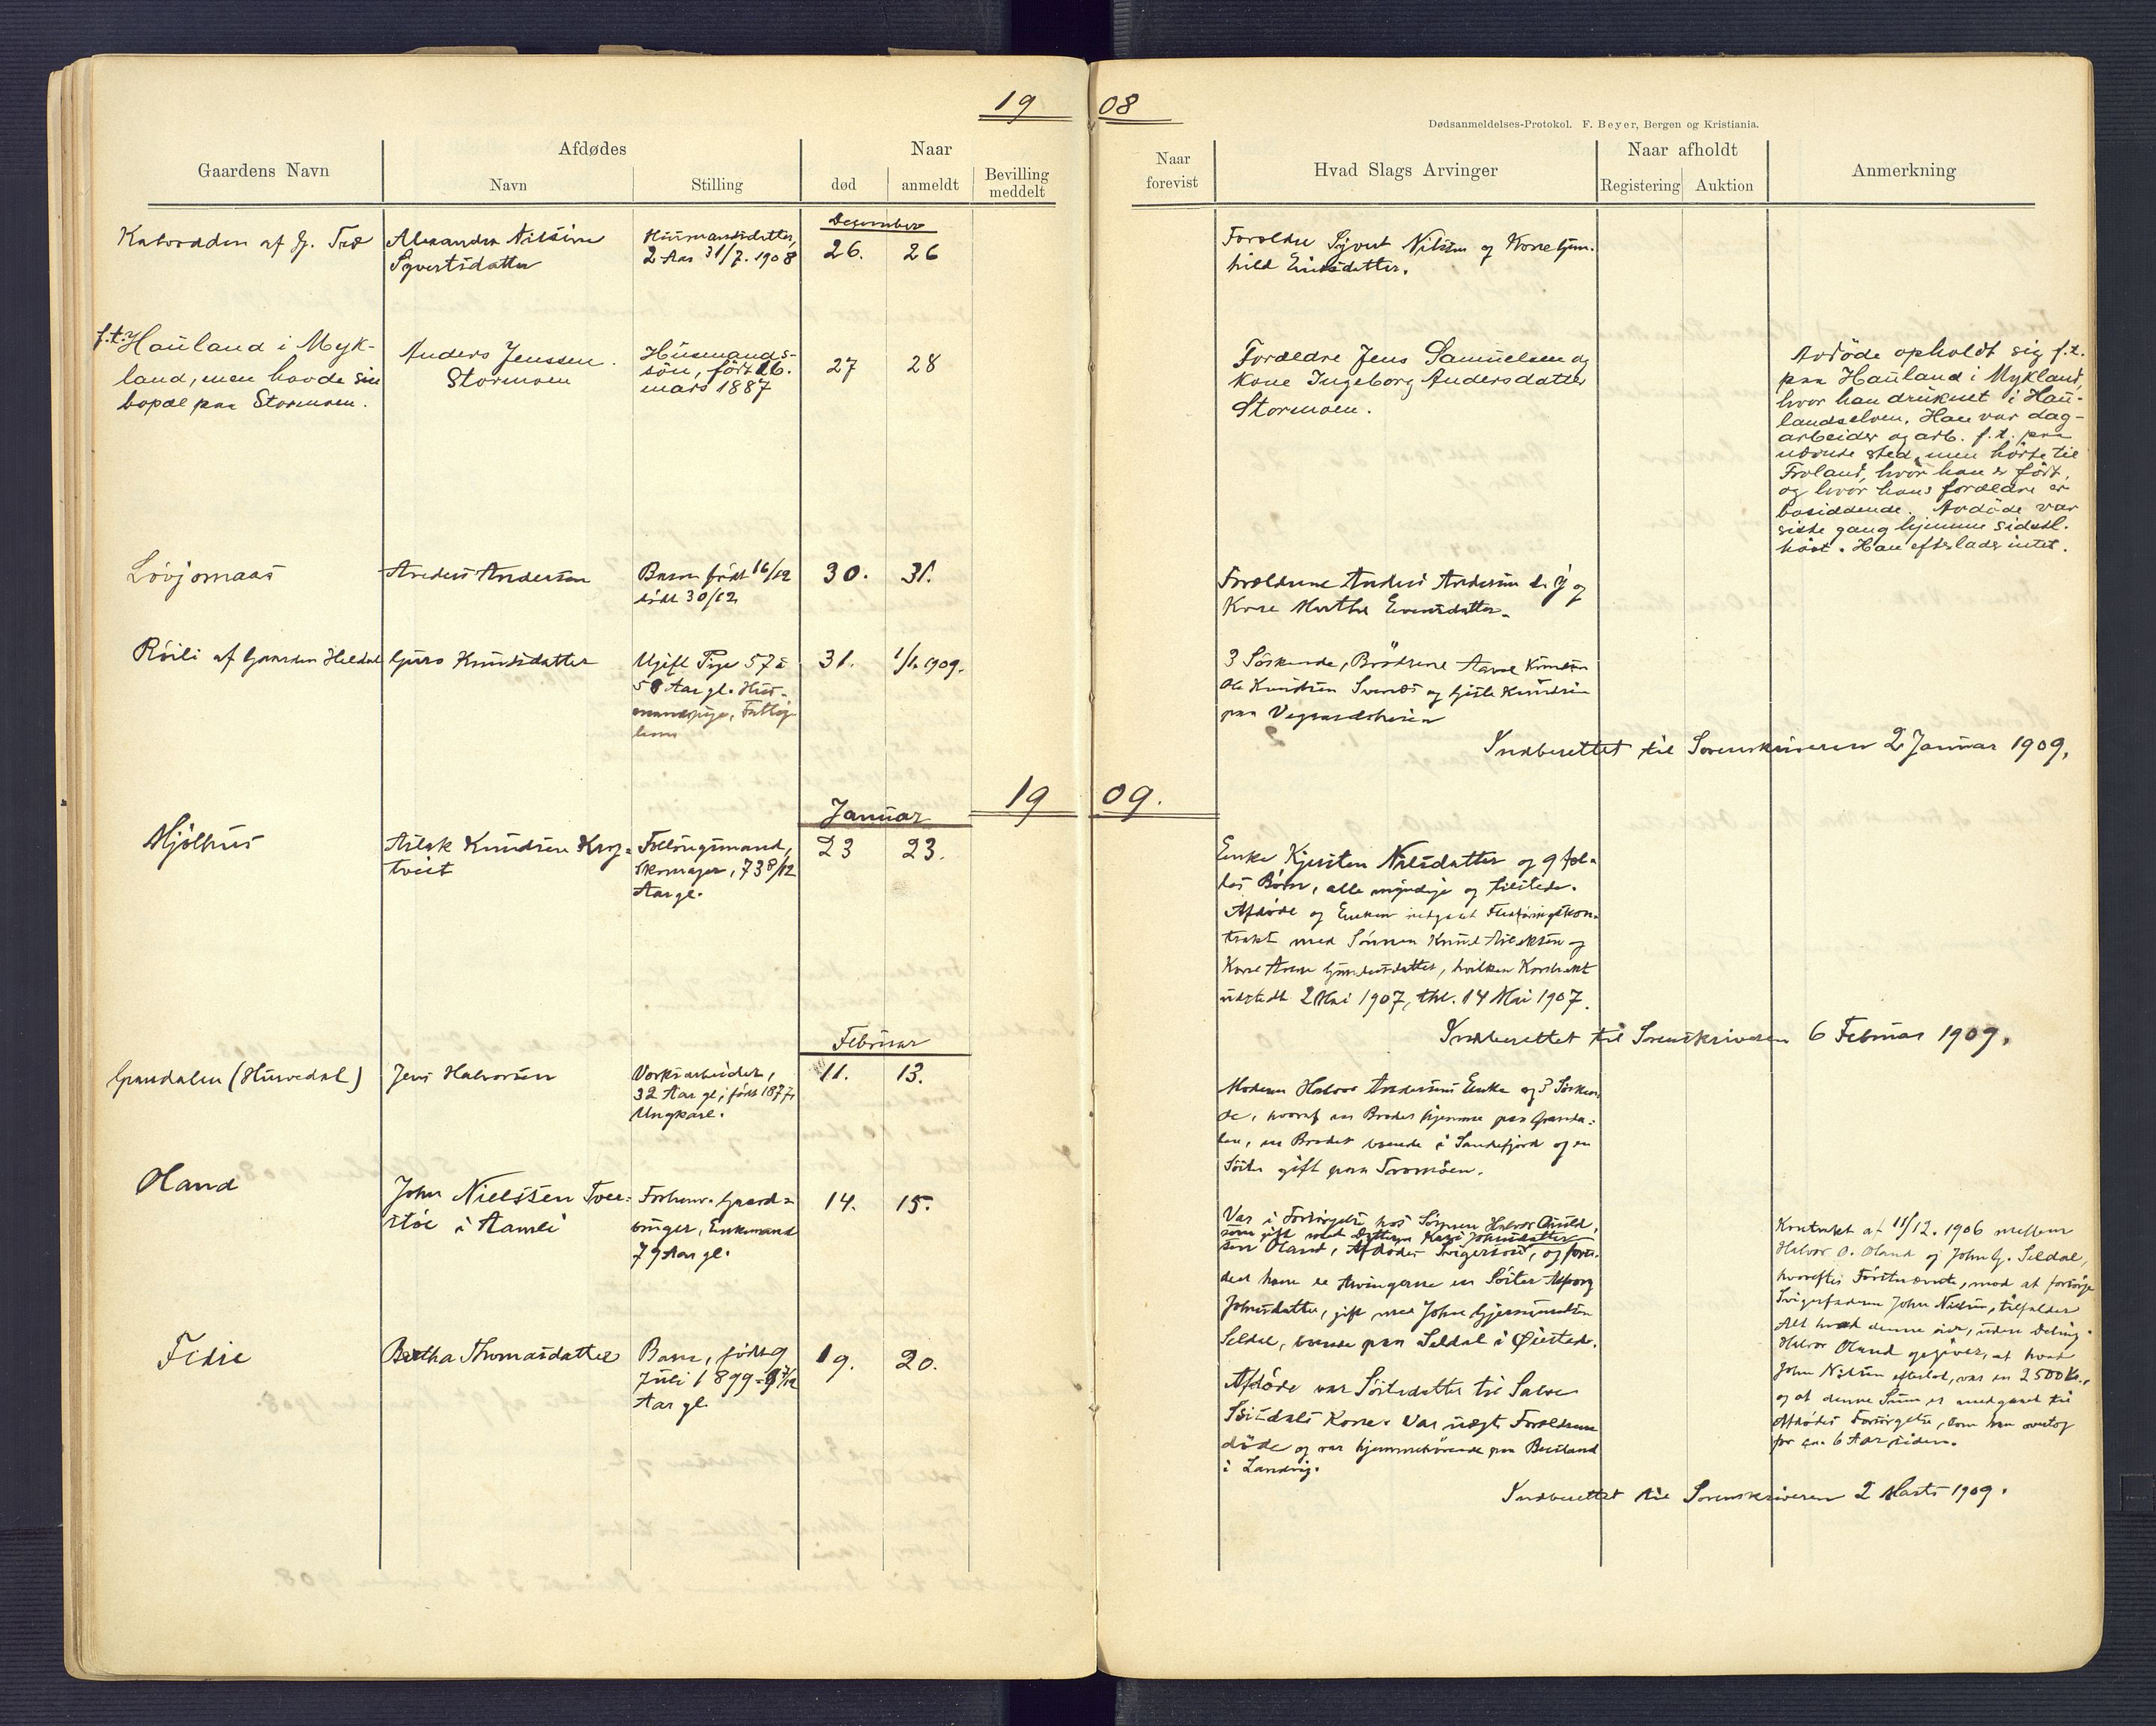 19 08
Dødsanmeldelses-Protokol. F. Beyer, Bergen og Kristiania.
Gaardens Navn
Afdødes
Navn
Stilling
Naar
død
anmeldt
Bevilling
meddelt
Naar
forevist
Hvad Slags Arvinger
Naar afholdt
Registering
Auktion
Anmerkning
Desember
af G. Træ
Alexandra Nilsine
Syvertsdatter
Husmandsdatter,
2 Aar 31/7. 1908
26.
26
Forældre Syvert Nilsen og Kone Gun-
hild Eriksdatter.
f.t. Hauland i Myk-
land, men havde sin
bopæl paa Stormoen.
Anders Jenssen
Stormoen
Husmands-
søn, født 16.
mars 1887
27
28
Forældre Jens Samuelsen og
kone Ingeborg Andersdatter
Stormoen.
Avdøde opholdt sig f.t.
paa Hauland i Mykland,
hvor han druknet i Hau-
landselven. Han var dag-
arbeider og arb. f.t. paa
nævnte sted, men hørte til
Froland, hvor han er født,
og hvor hans forældre er
bosiddende. Avdøde var
siste gang hjemme sidstl.
høst. Han efterlader intet.
Løvjomaas
Anders Andersen
Barn født 16/12
død 30/12
30.
31.
Forældrene Anders Andersen d.y. og
Kone Marthe Evensdatter.
Røili af Gaarden Heldal
Guro Knudsdatter
Ugift Pige 57 à
58 Aar gl. Hus-
mandspige, Fattig-
lem
31.
1/1. 1909.
3 Søskende, Brødrene Aanon Knudsen
Ole Knudsen Svenæs og Gjeste Knudsen
paa Vegaardsheien
Indberettet til Sorenskriveren 2 Januar 1909.
19 09.
Januar
Mjølhus
Aslak Knudsen Krog-
tveit
Føderaadsmand,
Skomager, 73 8/12
Aar gl.
23
23.
Enke Kjersten Nilsdatter og 9 fæl-
les Børn, alle myndige og tilstede.
Afdøde og Enken indgaaet Flatføringskon-
trakt med Sønnen Knud Aslaksen og
Kone Anne Gundersdatter, hvilken Kontrakt
udstedt 2 Mai 1907, thl. 14 Mai 1907.
Indberettet til Sorenskriveren 6 Februar 1909.
Februar
Grandalen (Husvedal)
Jens Halvorsen
Verksarbeider,
32 Aar gl; født 1877,
Ungkarl.
11.
13.
Moderen Halvor Andersens Enke og 3 Søsken-
de, hvoraf en Broder hjemme paa Granda-
len, en Broder boende i Sandefjord og en
Søster gift paa Tromøen.
Oland
John Nielssen Tvei-
støe i Aamli
Forhenv. Gaard-
bruger, Enkemand
79 Aar gl.
14.
15.
Var i Forsørgelse hos Sønnen Halvor Oluld-
som gift med Datteren Kari Johnsdatter
sen Oland, Afdødes Svigersøn, og foru-
den hun er Arvingerne en Søster Asborg
Johnsdatter, gift med John Gjermundsen
Seldal, boende paa Seldal i Øiestad.
Kontrakt af 11/12. 1906 mellem
Halvor O. Oland og John G. Seldal,
hvorefter Førstnævnte, mod at forsørge
Svigerfaderen John Nielsen, tilfalder
Alt hvad denne eier, uden Deling.
Halvor Oland opgiver, at hvad
John Nielsen efterlod, var en 2500 Kr.,
og at denne Sum er medgaaet til
Afdødes Forsørgelse, som han overtog
for ca. 6 Aar siden.
Fidie
Bertha Thomasdatter
Barn, født 9
Juli 1899 = 9 7/12
Aar gl.
19.
20.
Afdøde var Søsterdatter til Salve
Kone. Var uægte Forældrene
døde og var hjemmehørende paa
i Landvig.
Indberettet til Sorenskriveren 2 Marts 1909.